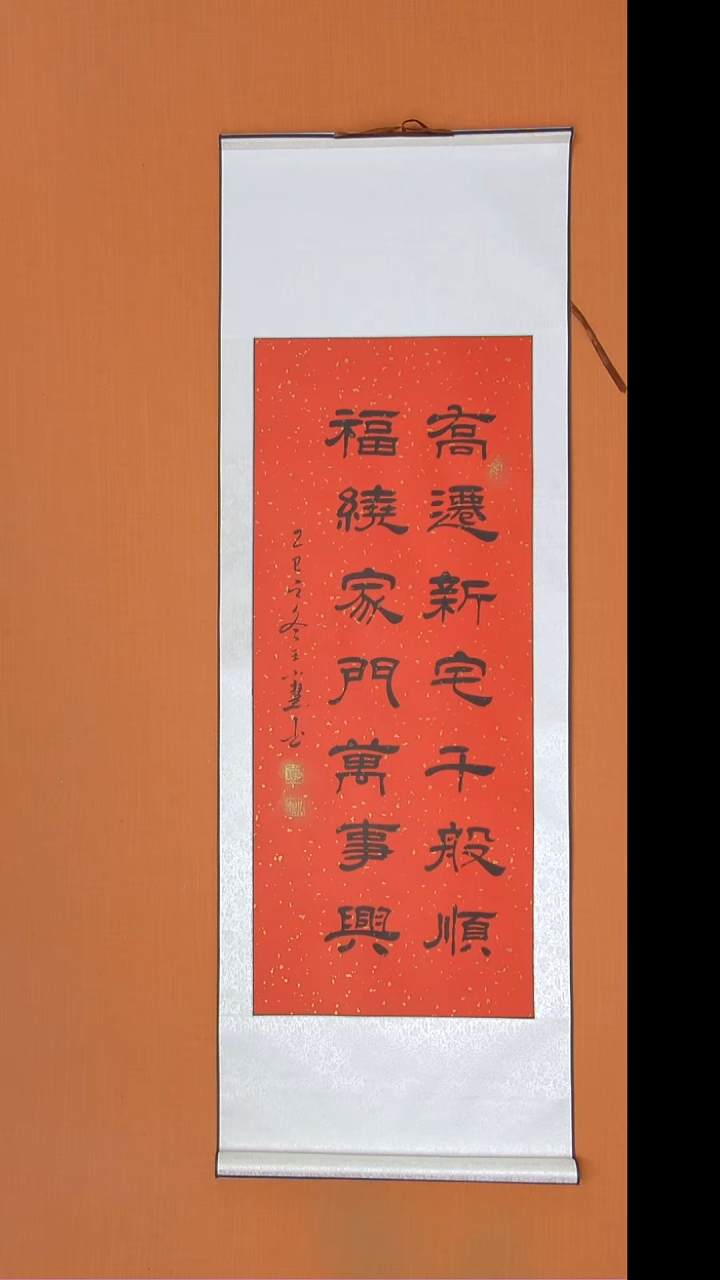 高遷新宅千般順
福繞家門萬事興
乙巳之冬王小蕙書